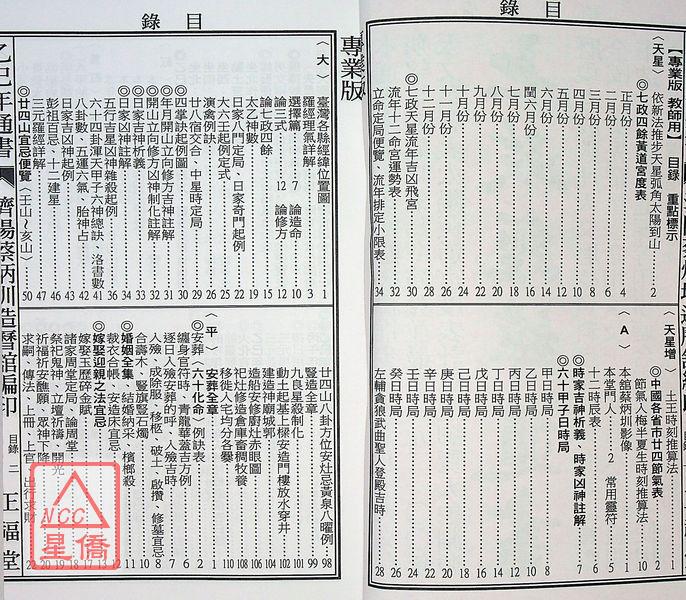 目錄
【專業版 教師用】 目錄 重點標示
〈天星〉
依新法推步天星弧角太陽到山 2
◎七政四餘黃道宮度表
正月份 4
二月份 6
三月份 8
四月份 9
五月份 10
六月份 12
閏六月份 14
七月份 16
八月份 18
九月份 20
十月份 22
十一月份 24
十二月份 26
◎七政天星流年吉凶飛宮 28
流年十二命宮運勢表 32
立命定局便覽、流年排定小限表 34
〈天星增〉
土王時刻推算法 1
◎中國各省市廿四節氣表 2
節氣入梅半夏生時刻推算法 10
〈A〉
本館蔡炳圳影像 1
本堂門人 2 常用靈符 5
十二時辰表 6
◎時家吉神析義、時家凶神註解 7
◎六十甲子日時局
甲日時局 8
乙日時局 10
丙日時局 12
丁日時局 14
戊日時局 16
己日時局 18
庚日時局 20
辛日時局 22
壬日時局 24
癸日時局 26
左輔貪狼武曲聖人登殿吉時 28
目錄
專業版
〈大〉
臺灣各縣經緯位置圖 1
羅經理氣詳解 3
選擇篇 7 論造命 10
論三式 12 論修方 15
論七政四餘 16
太乙神數 19
日家八門定局、日家奇門起例 22
大六壬起例定式 25
演禽例訣 26
廿八宿穴合、中星時定局 29
◎四掌訣起例圖 30
◎年月開山立向修方吉神註解 31
◎開山立向修方凶神制化註解 32
◎日家吉神析義 33
◎日家凶神註解 34
五行吉星凶神雜殺起例 36
六十四卦渾天甲子六神總訣、洛書數 41
八卦數、五運六氣、胎神占 42
日家吉凶神起例 43
彭祖百忌、十二建星 46
三元羅經詳解 47
◎廿四山宜忌便覽〈壬山~亥山〉 50
廿四山八卦方位安灶忌黃泉八曜例 98
豎造全章 99
九良星殺制化 101
動土起基上樑安造門樓放水穿井 102
建造神廟城郭 104
造船安修廚灶赤眼圖 106
祀灶修造倉庫畜稠牧養 108
移徙人宅均分各爨 110
〈平〉
安葬全章 1
◎安葬〈六十化命〉例訣表 2
纏身官符時、青龍華蓋吉方例 6
逐日入殮安葬的呼、入殮吉時 7
人殮、成除服、移柩、破土、啟攢、修墓宜忌 8
合壽木、豎旗豎石燭 10
◎婚姻全集 結婚納采、檳榔殺 11
裁衣合帳、安造床宜忌 12
◎嫁娶迎親之法宜忌 13
嫁娶玉歷碎金賦 17
諸家周堂定局、論周堂 18
祭祀鬼神、立壇祈禱、開光 19
祈福祈安醮願、眾神下降 20
求嗣、傳法、上冊、上官、出行求財 22
乙巳年通書 濟陽蔡炳圳造曆館編印 目錄 二 正福堂
NCC
星僑